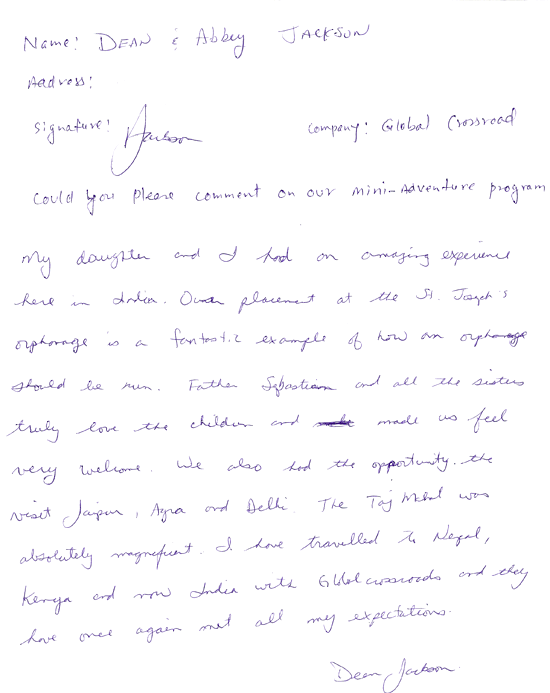 Name: DEAN & Abbey JACKSON
Aadress:
Signature: Jackson Company: Global Crossroad
Could you please comment on our mini-Adventure program
My daughter and I had an amazing experience
here in India. Our placement at the St. Joseph's
orphanage is a fantastic example of how an orphanage
should be run. Father Sebastian and all the sisters
truly love the children and made us feel
very welcome. We also had the opportunity the
visit Jaipur, Agra and Delhi. The Taj Mahal was
absolutely magnificent. I have travelled to Nepal,
Kenya and now India with Globalcrossroads and they
have once again met all my expectations.
Dean Jackson.